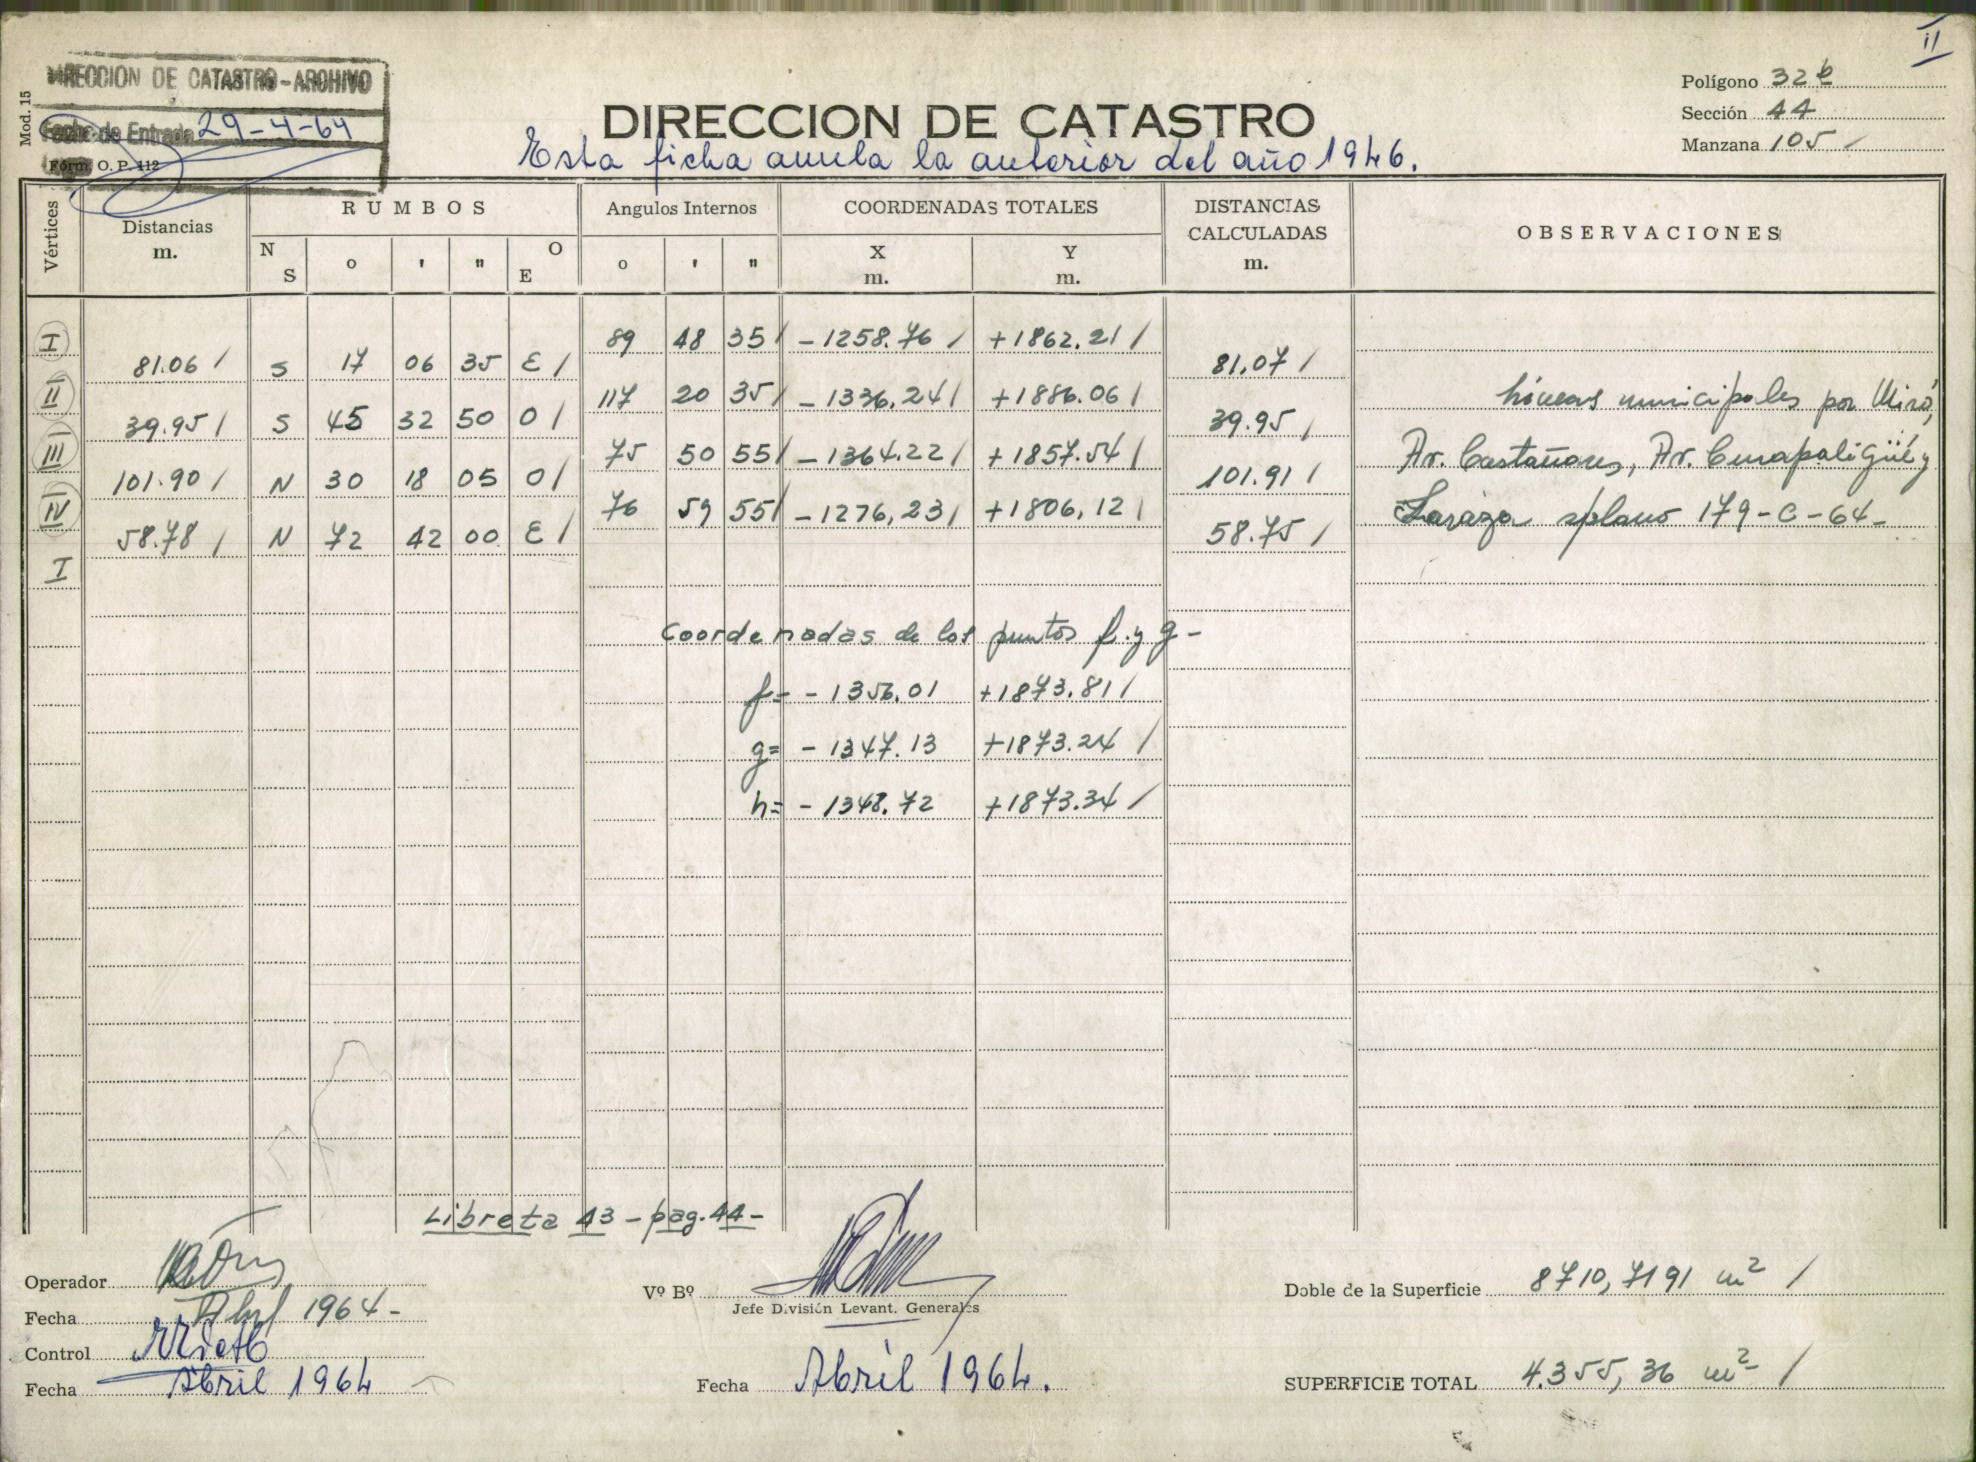 II
DIRECCION DE CATASTRO - ARCHIVO
Fecha de Entrada 29-4-64
Mod. 15
Form. O. P. 112
DIRECCION DE CATASTRO
Esta ficha anula la anterior del año 1946.
Polígono 32 b
Sección 44
Manzana 105
Vértices Distancias m. RUMBOS Angulos Internos COORDENADAS TOTALES DISTANCIAS CALCULADAS m. OBSERVACIONES
N S o ' " O E o ' " X m. Y m.
I 89 48 35 / - 1258.76 / + 1862.21 /
81.06 / S 17 06 35 E / 81.07 /
II 117 20 35 / - 1336,24 / + 1886.06 /
39.95 / S 45 32 50 O / 39.95 /
III 75 50 55 / - 1364.22 / + 1857.54 /
101.90 / N 30 18 05 O / 101.91 /
IV 76 59 55 / - 1276,23 / + 1806,12 /
58.78 / N 72 42 00 E / 58.75 /
I
Líneas municipales por Miró,
Av. Castañares, Av. Curapaligüé y
Laraza s/plano 179-C-64-
Coordenadas de los puntos f. y g -
f = - 1356.01 + 1873.81 /
g = - 1347.13 + 1873.24 /
h = - 1348.72 + 1873.34 /
Libreta 43 - pag. 44 -
Operador
Fecha Abril 1964-
Control
Fecha Abril 1964
Vº Bº
Jefe División Levant. Generales
Fecha Abril 1964.
Doble de la Superficie 8710,7191 m² /
SUPERFICIE TOTAL 4.355,36 m² /